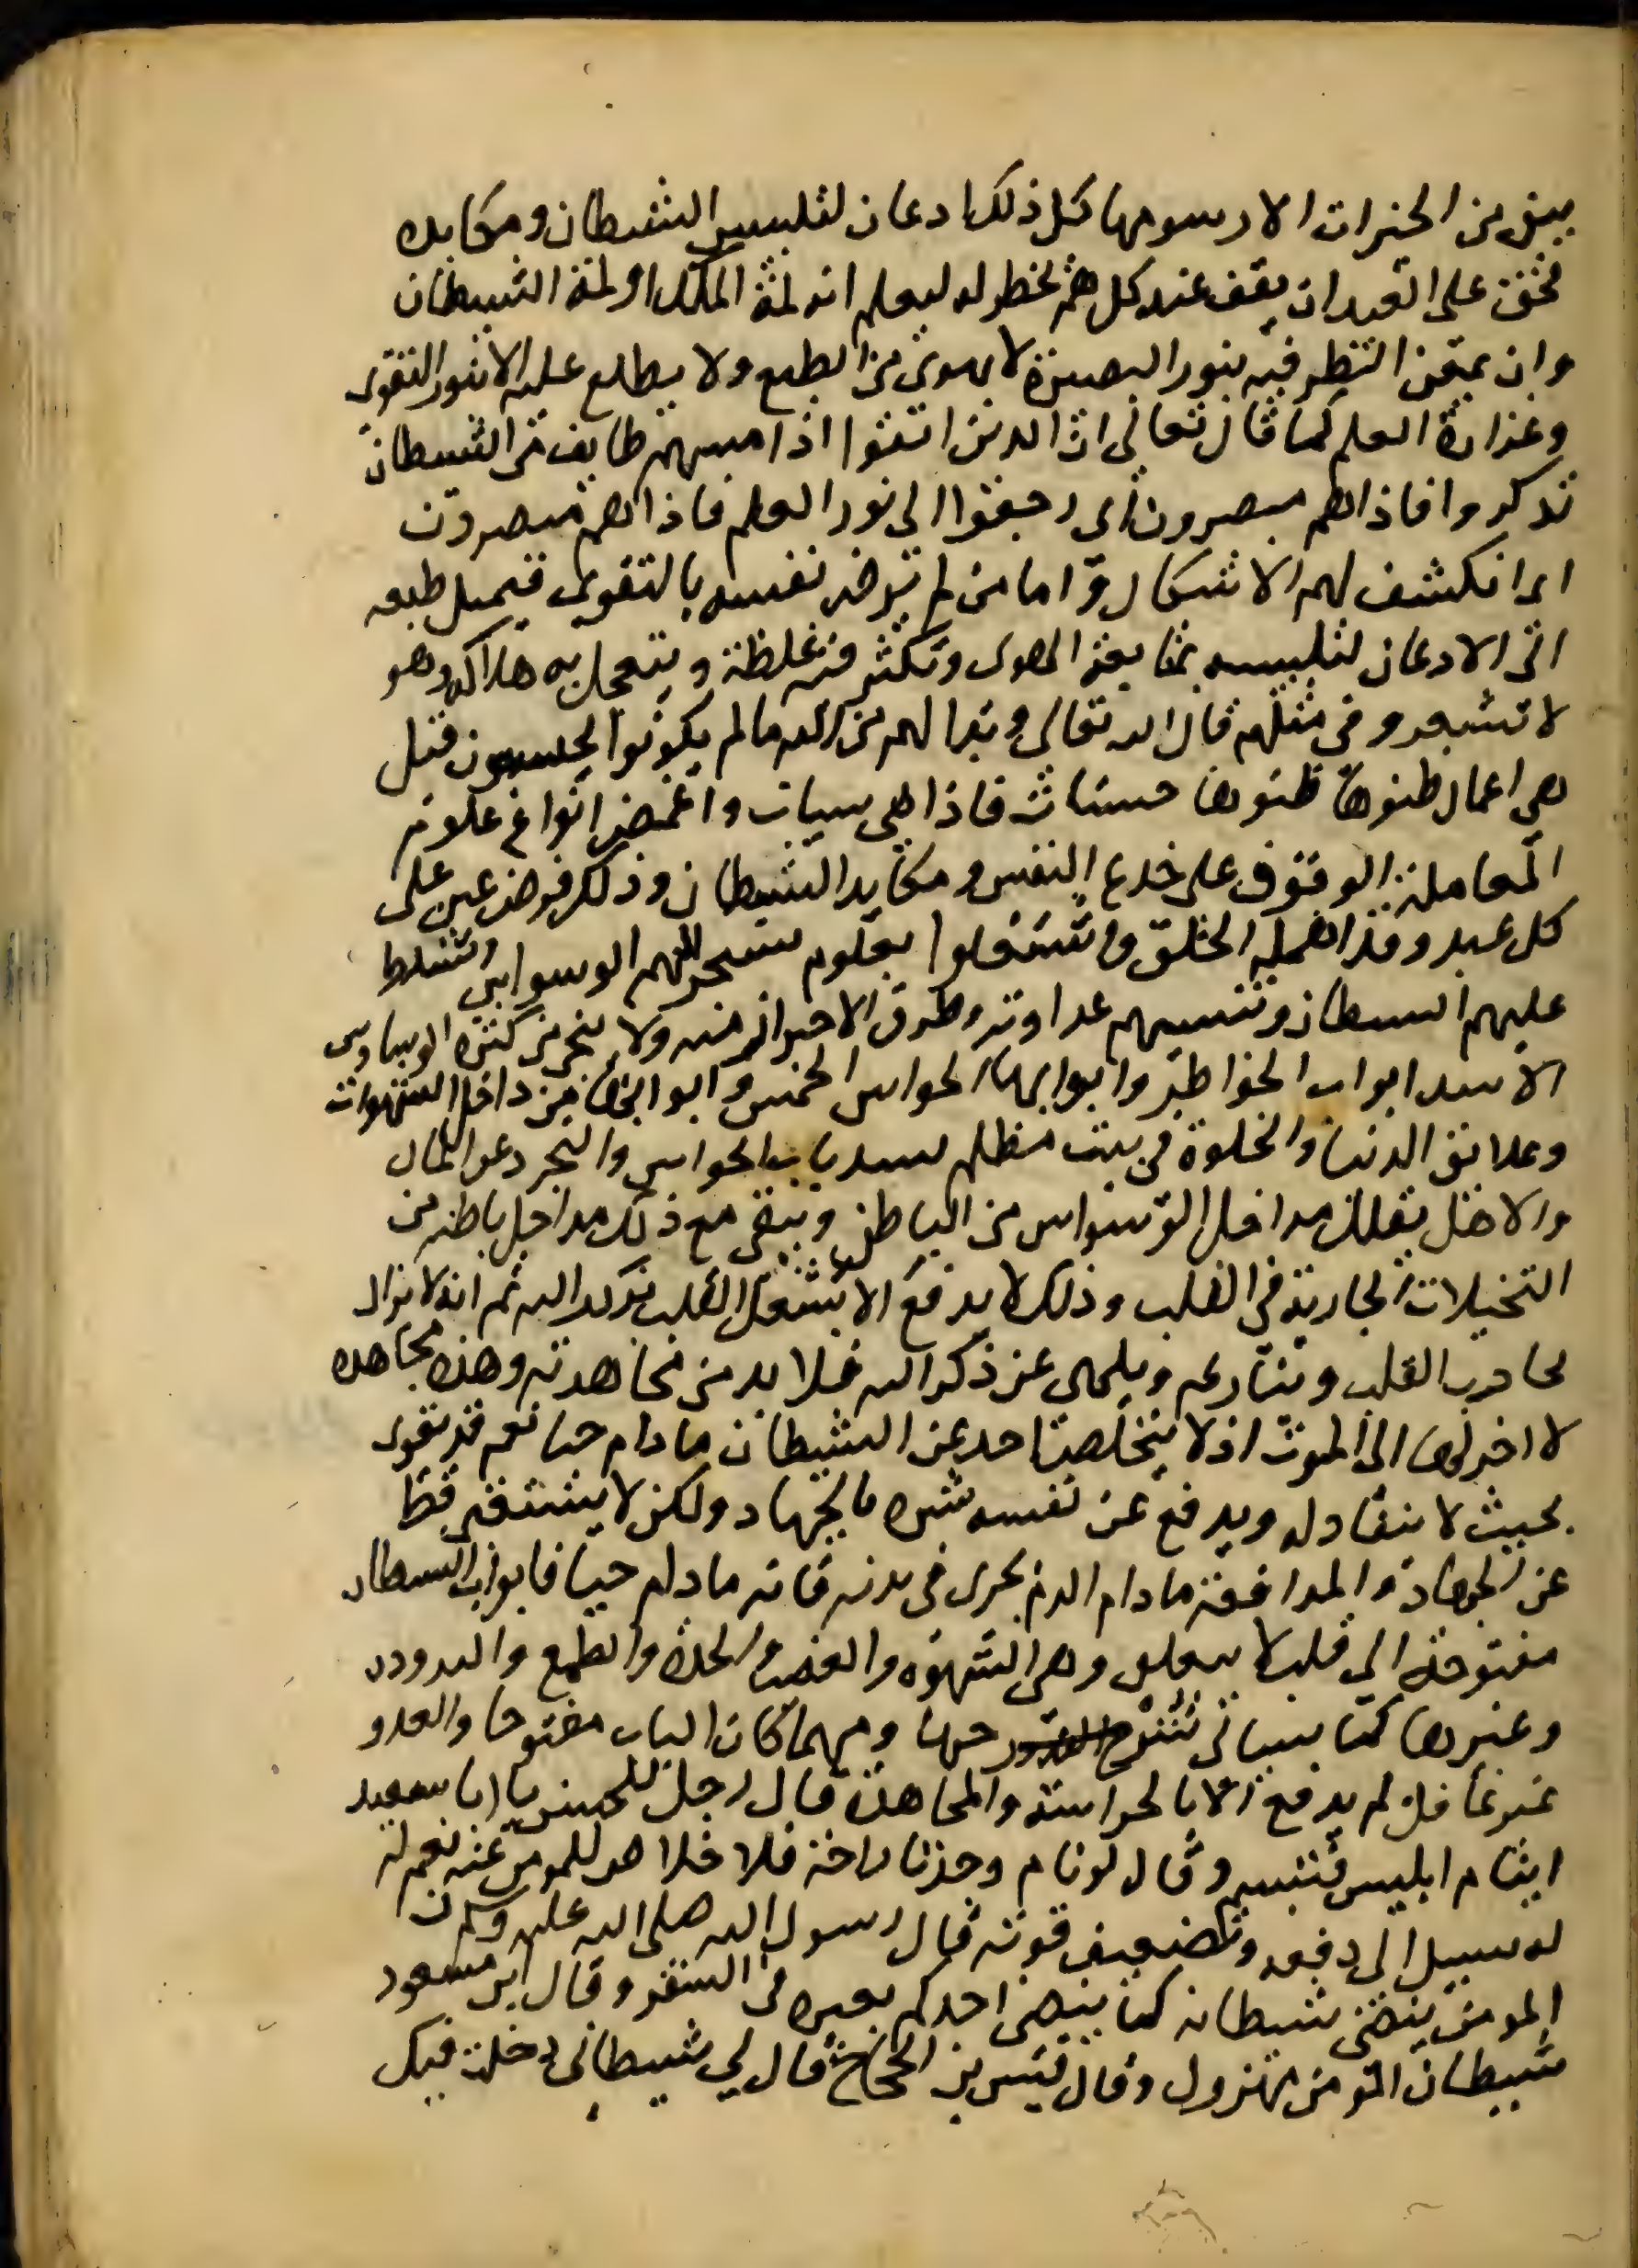 يبق من الخيرات الا رسومها كل ذلك ادعان لتلبيس الشيطان ومكايده
فحق على العبد ان يقف عند كل هم يخطر له ليعلم انه لمة الملك او لمة الشيطان
وان يمعن النظر فيه بنور البصيرة لا بهوى من الطبع ولا يطلع عليه الا بنور التقوى
وغزارة العلم كما قال تعالى ان الذين اتقوا اذا مسهم طايف من الشيطان
تذكروا فاذا هم مبصرون اى رجعوا الى نور العلم فاذا هم مبصرون
اى انكشف لهم الاشكال واما من لم يرض نفسه بالتقوى فيميل طبعه
الى الادعان لتلبيسه بمتابعة الهوى وتكثر فيه غلطة ويتعجل به هلاكه وهو
لا تشعر وفي مثلهم قال الله تعالى وبدا لهم من الله ما لم يكونوا يحتسبون قيل
هي اعمال ظنوها ظنوها حسنات فاذا هى سيات واغمض انواع علوم
المعاملة الوقوف على خدع النفس ومكايد الشيطان وذلك فرض عين على
كل عبد وقد اهمله الخلق واشتغلوا بعلوم تستجر اليهم الوسواس وتسلط
عليهم الشيطان وتنسيهم عداوته وطرق الاحتراز منه ولا ينجى من كثرة الوساوس
الا سد ابواب الخواطر وابوابها الحواس الخمس وابوابها من داخل الشهوات
وعلائق الدنيا والخلوة في بيت مظلم يسد باب الحواس والتجرد عن المال
والاهل يقلل مداخل الوسواس من الباطن ويبقى مع ذلك مداخل باطنه من
التخيلات الجارية في القلب وذلك لا يدفع الا بشغل القلب بذكر الله ثم انه لا يزال
يحادب القلب وينازعه ويلهى عن ذكر الله فلا بد من مجاهدته وهذه مجاهده
لا اخر لها الى الموت اذ لا يتخلص احد عن الشيطان ما دام حيا نعم قد يقوى
بحيث لا ينقاد له ويدفع عن نفسه شره بالجهاد ولكن لا يستغنى قط
عن الجهاد والمدافعة ما دام الدم يجرى في بدنه فانه ما دام حيا فابواب الشيطان
مفتوحة الى قلبه لا ينغلق وهى الشهوه والغضب والحدة والطمع والشره
وغيرها كما سياتى شرحها ومهما كان الباب مفتوحا والعدو
غير غافل لم يدفع الا بالحراسة والمجاهدة قال رجل للحسن يا ابا سعيد
اينام ابليس فتبسم وقال لو نام وجدنا راحة فلا خلاص للمومن عنه نعم له
له سبيل الى دفعه وتضعيف قوته قال رسول الله صلى الله عليه وسلم ان
المومن ينضى شيطانه كما ينضى احدكم بعيره في السفر وقال ابن مسعود
شيطان المومن مهزول وقال قيس بن الحجاج قال لي شيطانى دخلت فيك